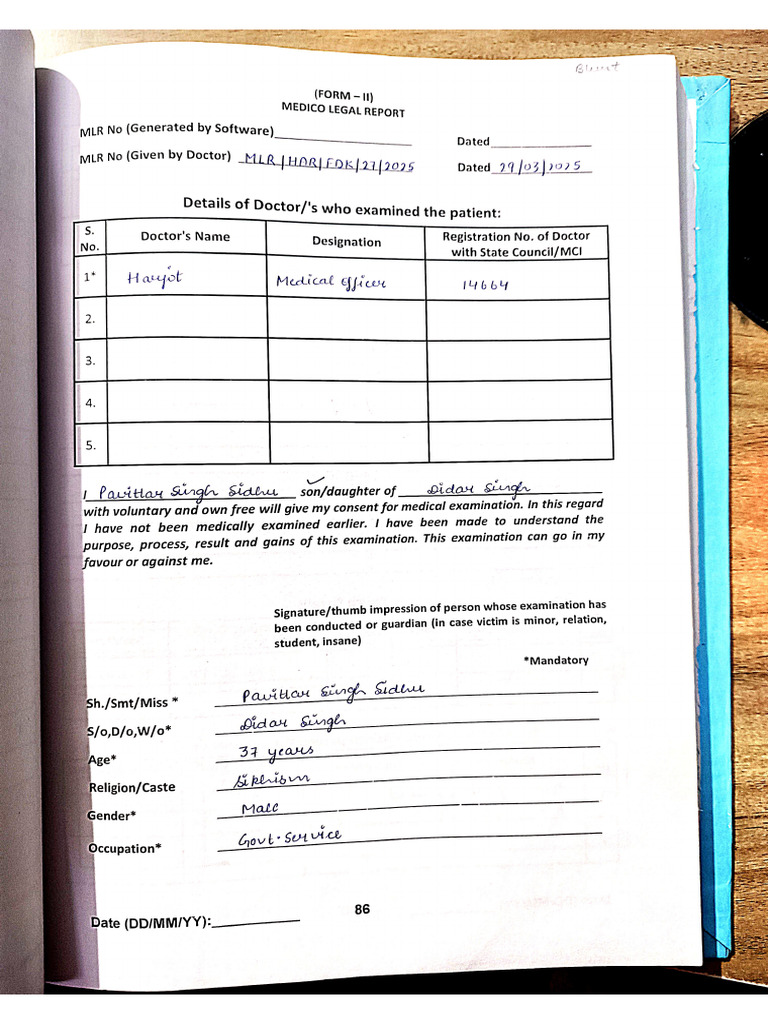 Blunt
(FORM – II)
MEDICO LEGAL REPORT
MLR No (Generated by Software)____________________ Dated_______________
MLR No (Given by Doctor) MLR/HAR/FDK/27/2025 Dated 29/03/2025
Details of Doctor/'s who examined the patient:
S. No. Doctor's Name Designation Registration No. of Doctor with State Council/MCI
1* Harjot Medical officer 14664
2.
3.
4.
5.
I Pavittar Singh Sidhu son/daughter of Didar Singh
with voluntary and own free will give my consent for medical examination. In this regard
I have not been medically examined earlier. I have been made to understand the
purpose, process, result and gains of this examination. This examination can go in my
favour or against me.
Signature/thumb impression of person whose examination has
been conducted or guardian (in case victim is minor, relation,
student, insane)
*Mandatory
Sh./Smt/Miss * Pavittar Singh Sidhu
S/o,D/o,W/o* Didar Singh
Age* 37 years
Religion/Caste Sikhism
Gender* Male
Occupation* Govt. Service
86
Date (DD/MM/YY):____________